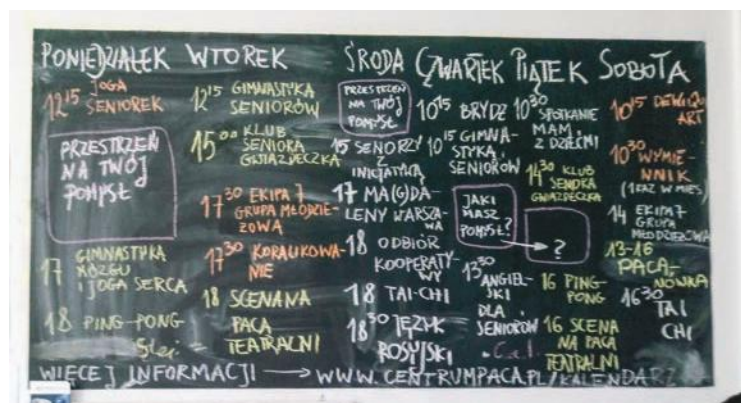 PONIEDZIAŁEK
12¹⁵ JOGA
SENIOREK
PRZESTRZEŃ
NA TWÓJ
POMYSŁ
17 GIMNASTYKA
MÓZGU
I JOGA SERCA
18 PING-PONG
WTOREK
12¹⁵ GIMNASTYKA
SENIORÓW
15⁰⁰ KLUB
SENIORA
GWIAZDECZKA
17³⁰ EKIPA 7
GRUPA MŁODZIE-
ŻOWA
17³⁰ KORALIKOWA-
NIE
18 SCENA NA
PACA
TEATRALNI
ŚRODA
PRZESTRZEŃ
NA TWÓJ
POMYSŁ
15 SENIORZY
Z
INICJATYWĄ
17 MA(G)DA-
LENY WARSZA-
WA
18 ODBIÓR
KOOPERATY-
WY
18 TAI-CHI
18³⁰ JĘZYK
ROSYJSKI
CZWARTEK
10¹⁵ BRYDŻ
10¹⁵ GIMNA-
STYKA
SENIORÓW
JAKI
MASZ
POMYSŁ?
13³⁰ ANGIEL-
SKI
DLA
SENIORÓW
PIĄTEK
10³⁰ SPOTKANIE
MAM
Z DZIEĆMI
14³⁰ KLUB
SENIORA
GWIAZDECZKA
?
16 PING-
PONG
16 SCENA
NA PACA
TEATRALNI
SOBOTA
10¹⁵
ART
10³⁰ WYMIE-
NNIK
(1 RAZ W MIES)
14 EKIPA 7
GRUPA
MŁODZIEŻOWA
13-16
PACA-
NÓWKA
16³⁰ TAI
CHI
WIĘCEJ INFORMACJI → WWW.CENTRUMPACA.PL/KALENDARZ